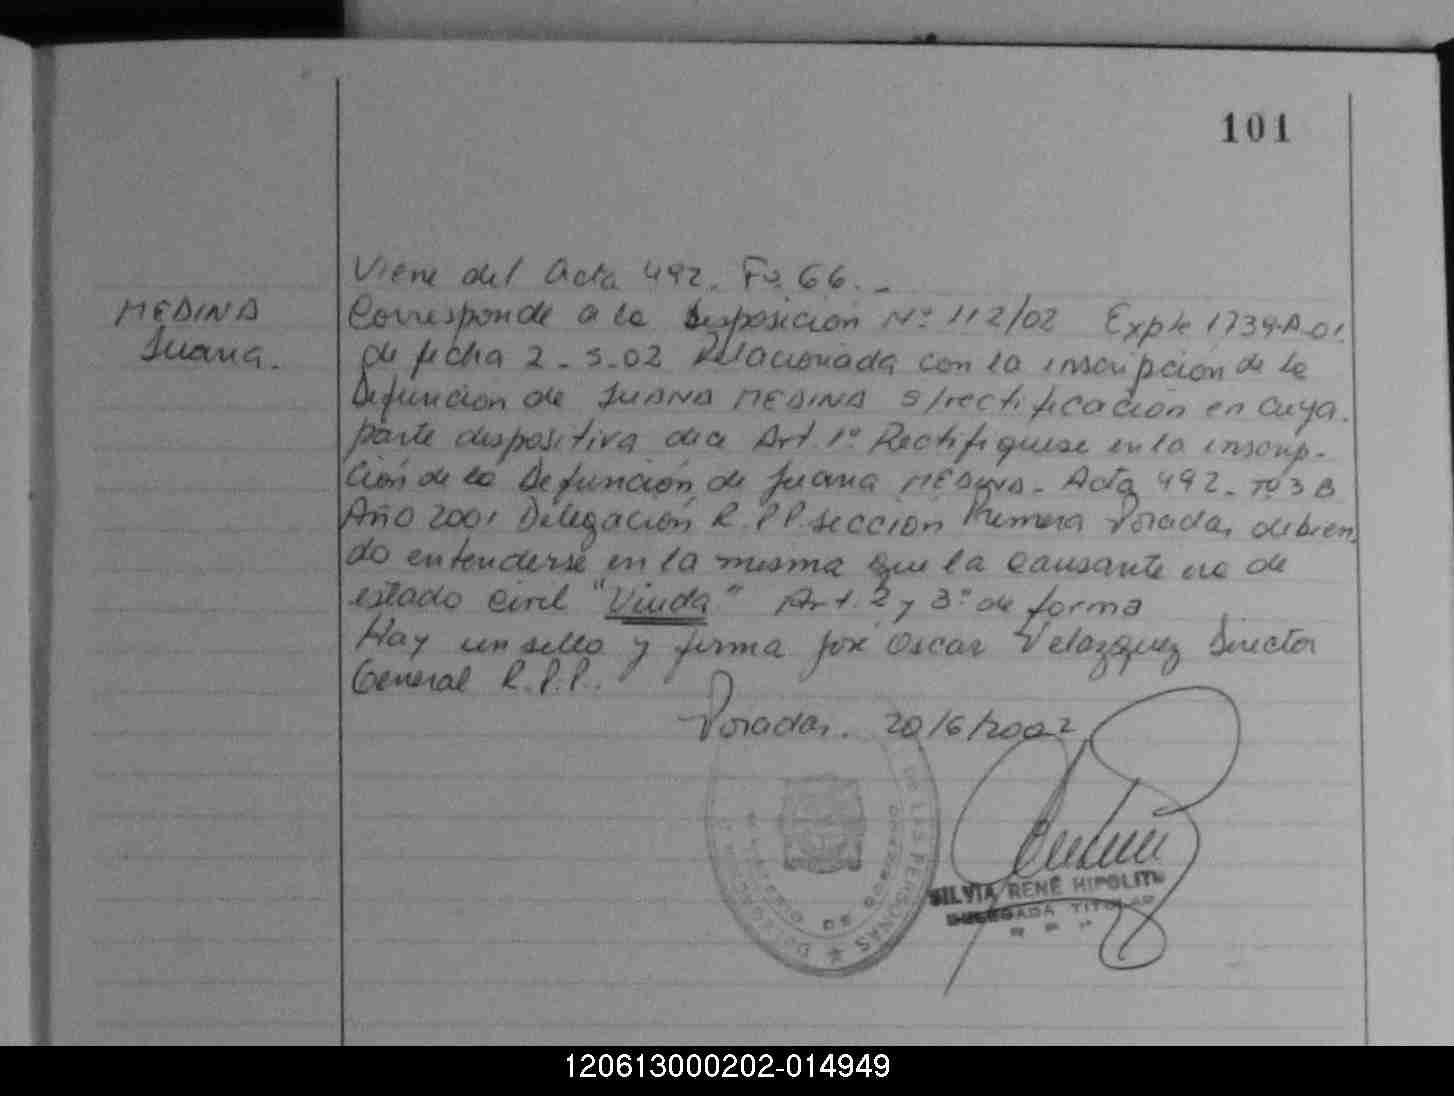 101
Viene del Acta 492. Fo. 66.-
MEDINA
Juana.
Corresponde a la disposición Nº 112/02 Expte 1739-A-01.
de fecha 2-5-02 Relacionada con la inscripción de la
Defunción de JUANA MEDINA s/rectificación en cuya.
parte dispositiva dice Art. 1º Rectifiquese en la inscrip-
ción de la Defunción de Juana MEDINA - Acta 492 - Tº 3 B
Año 2001 Delegación R.P.P. sección Primera Posadas, debien
do entenderse en la misma que la causante era de
estado civil "Viuda" Art. 2 y 3º de forma
Hay un sello y firma José Oscar Velazquez Director
General R.P.P.
Posadas. 20/6/2002
DE LAS PERSONAS
SILVIA RENÉ HIPOLITO
DELEGADA TITULAR
120613000202-014949